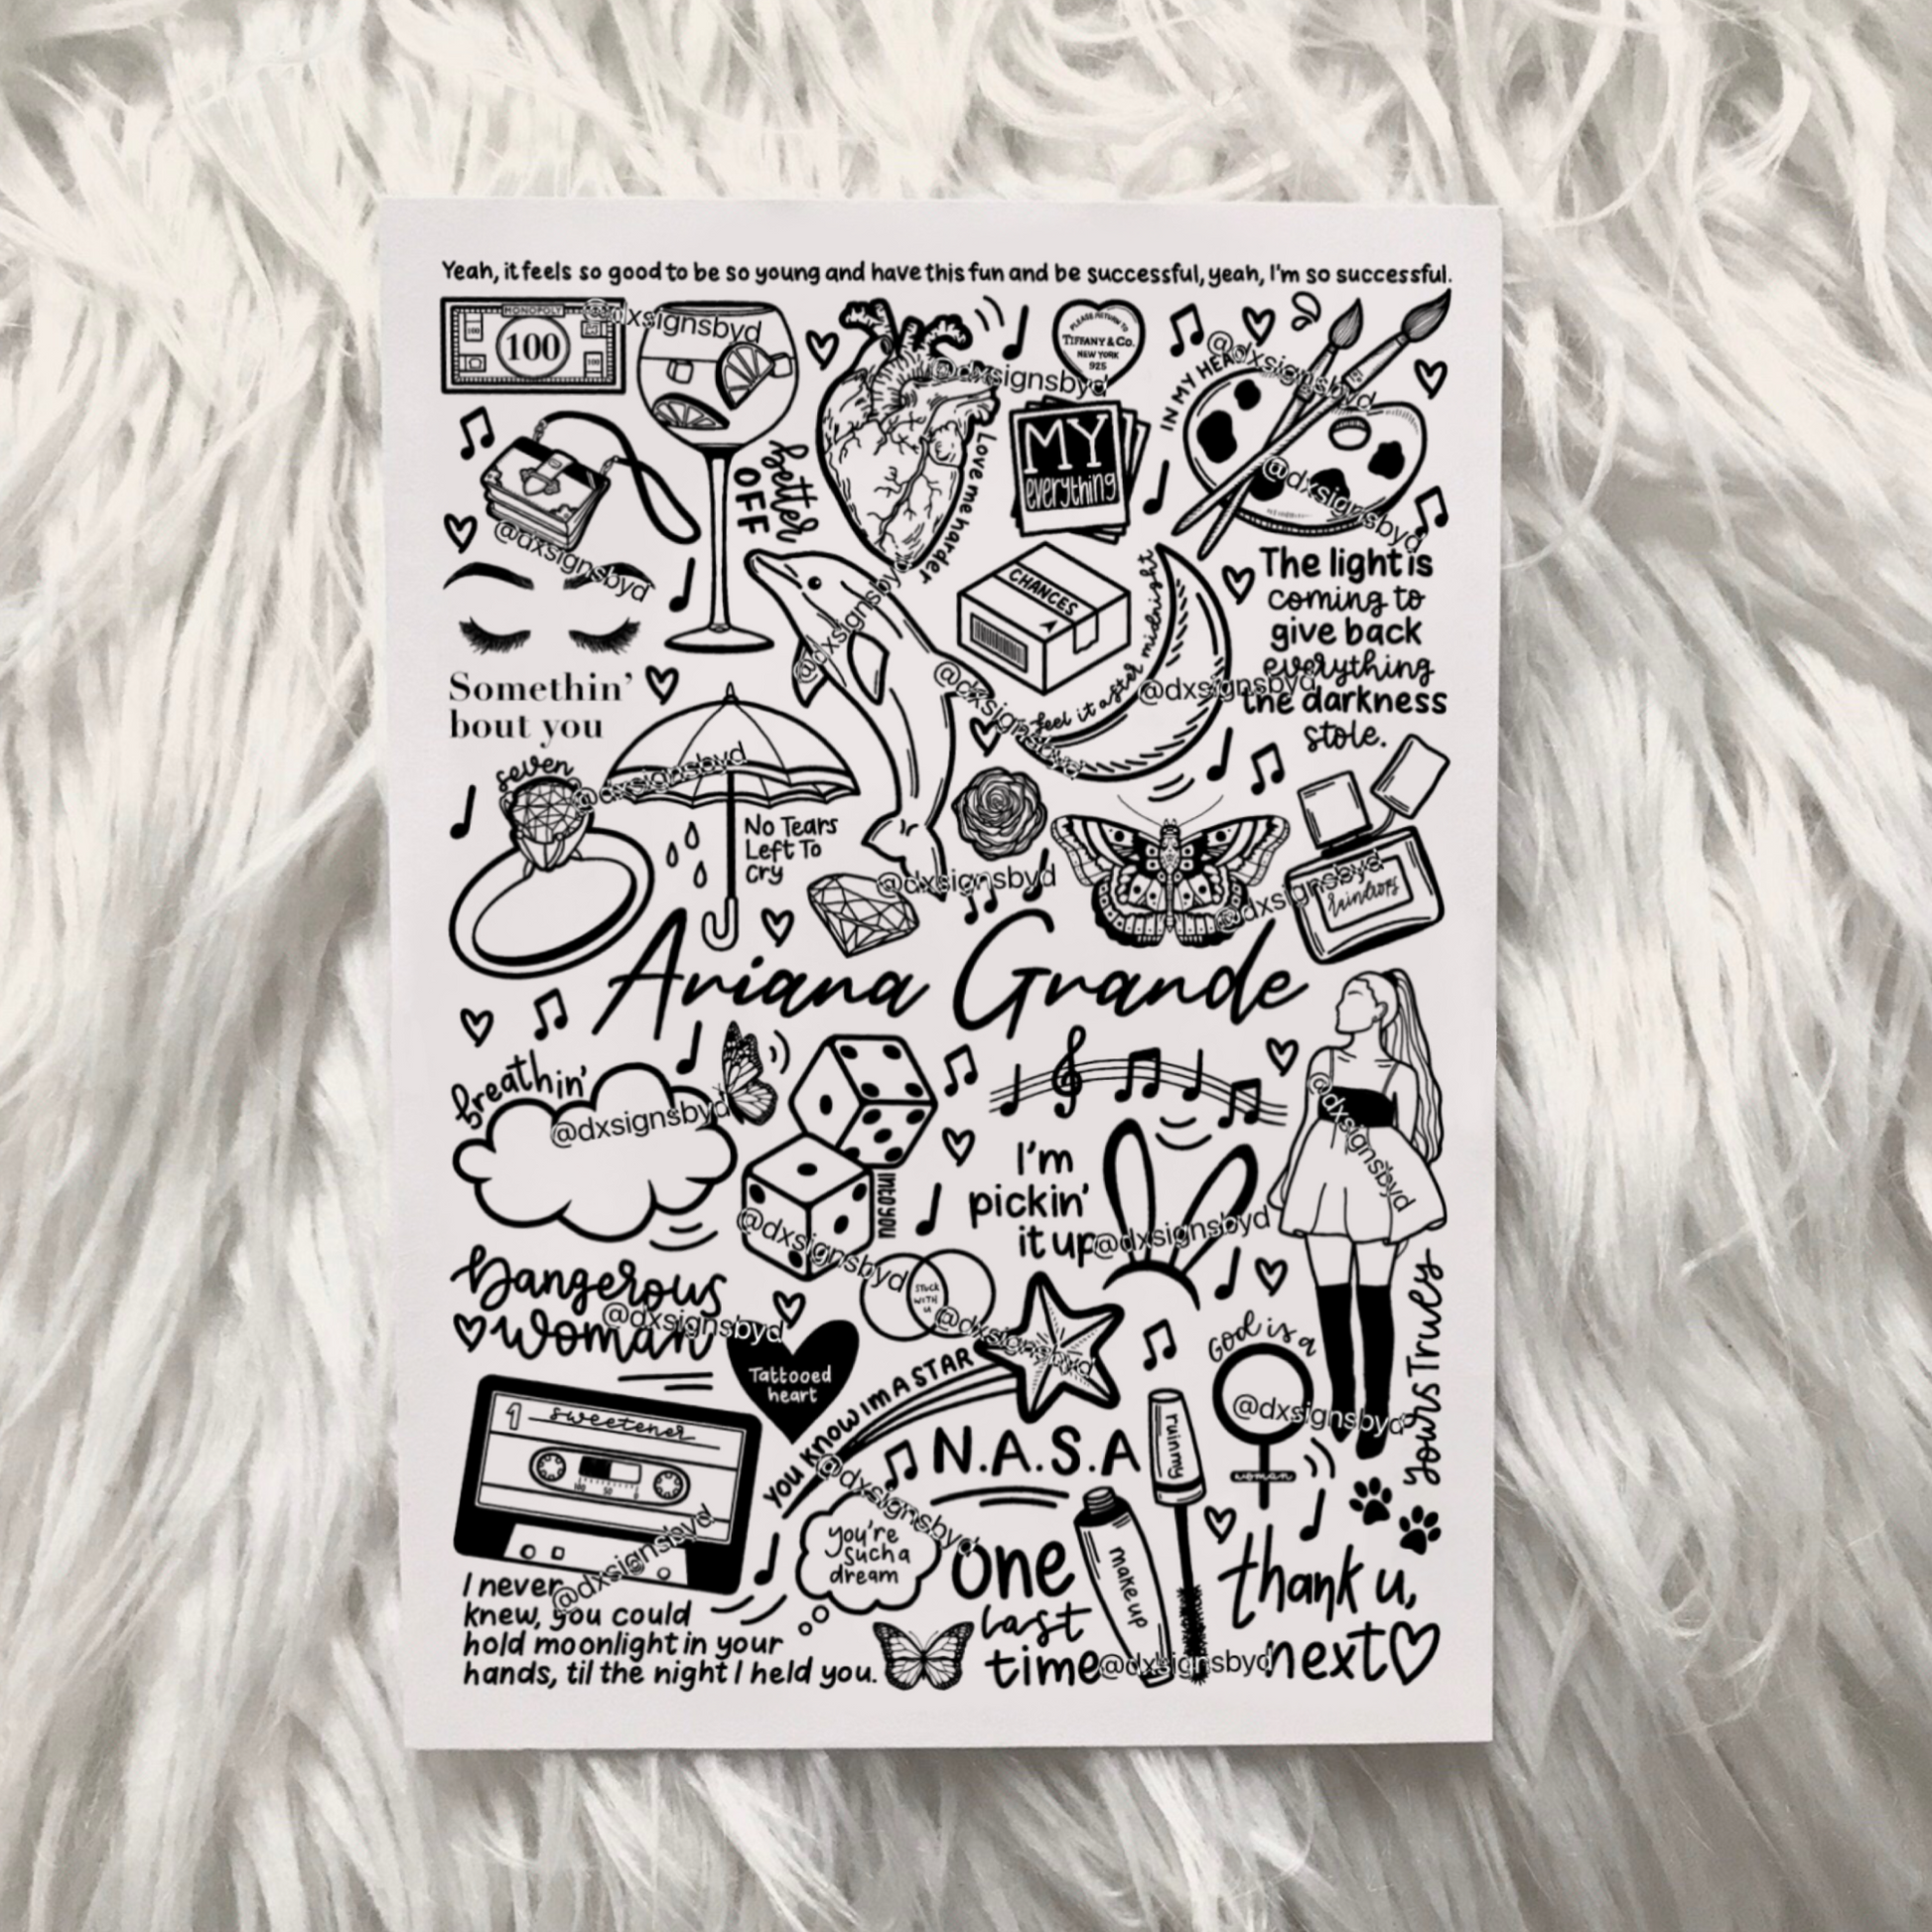 Yeah, it feels so good to be so young and have this fun and be successful, yeah, I'm so successful.
MONOPOLY
100
100
100
@dxsignsbyd
better
OFF
Love me harder
@dxsignsbyd
PLEASE RETURN TO
TIFFANY & CO.
NEW YORK
925
MY
everything
IN MY HEAD
@dxsignsbyd
@dxsignsbyd
@dxsignsbyd
Somethin'
bout you
@dxsignsbyd
CHANCES
feel it after midnight
@dxsignsbyd
@dxsignsbyd
The light is
coming to
give back
everything
the darkness
stole.
seven
@dxsignsbyd
No Tears
Left To
Cry
@dxsignsbyd
@dxsignsbyd
Raindrops
Ariana Grande
breathin'
@dxsignsbyd
into you
@dxsignsbyd
I'm
pickin'
it up
@dxsignsbyd
@dxsignsbyd
Dangerous
woman
@dxsignsbyd
STUCK
WITH
U
@dxsignsbyd
Tattooed
heart
YOU KNOW IM A STAR
God is a
woman
@dxsignsbyd
Yours Truey
1 sweetener
100 50 0
@dxsignsbyd
N.A.S.A
ruinmy
make up
@dxsignsbyd
you're
such a
dream
I never
knew, you could
hold moonlight in your
hands, til the night I held you.
one
last
time
@dxsignsbyd
thank u,
next